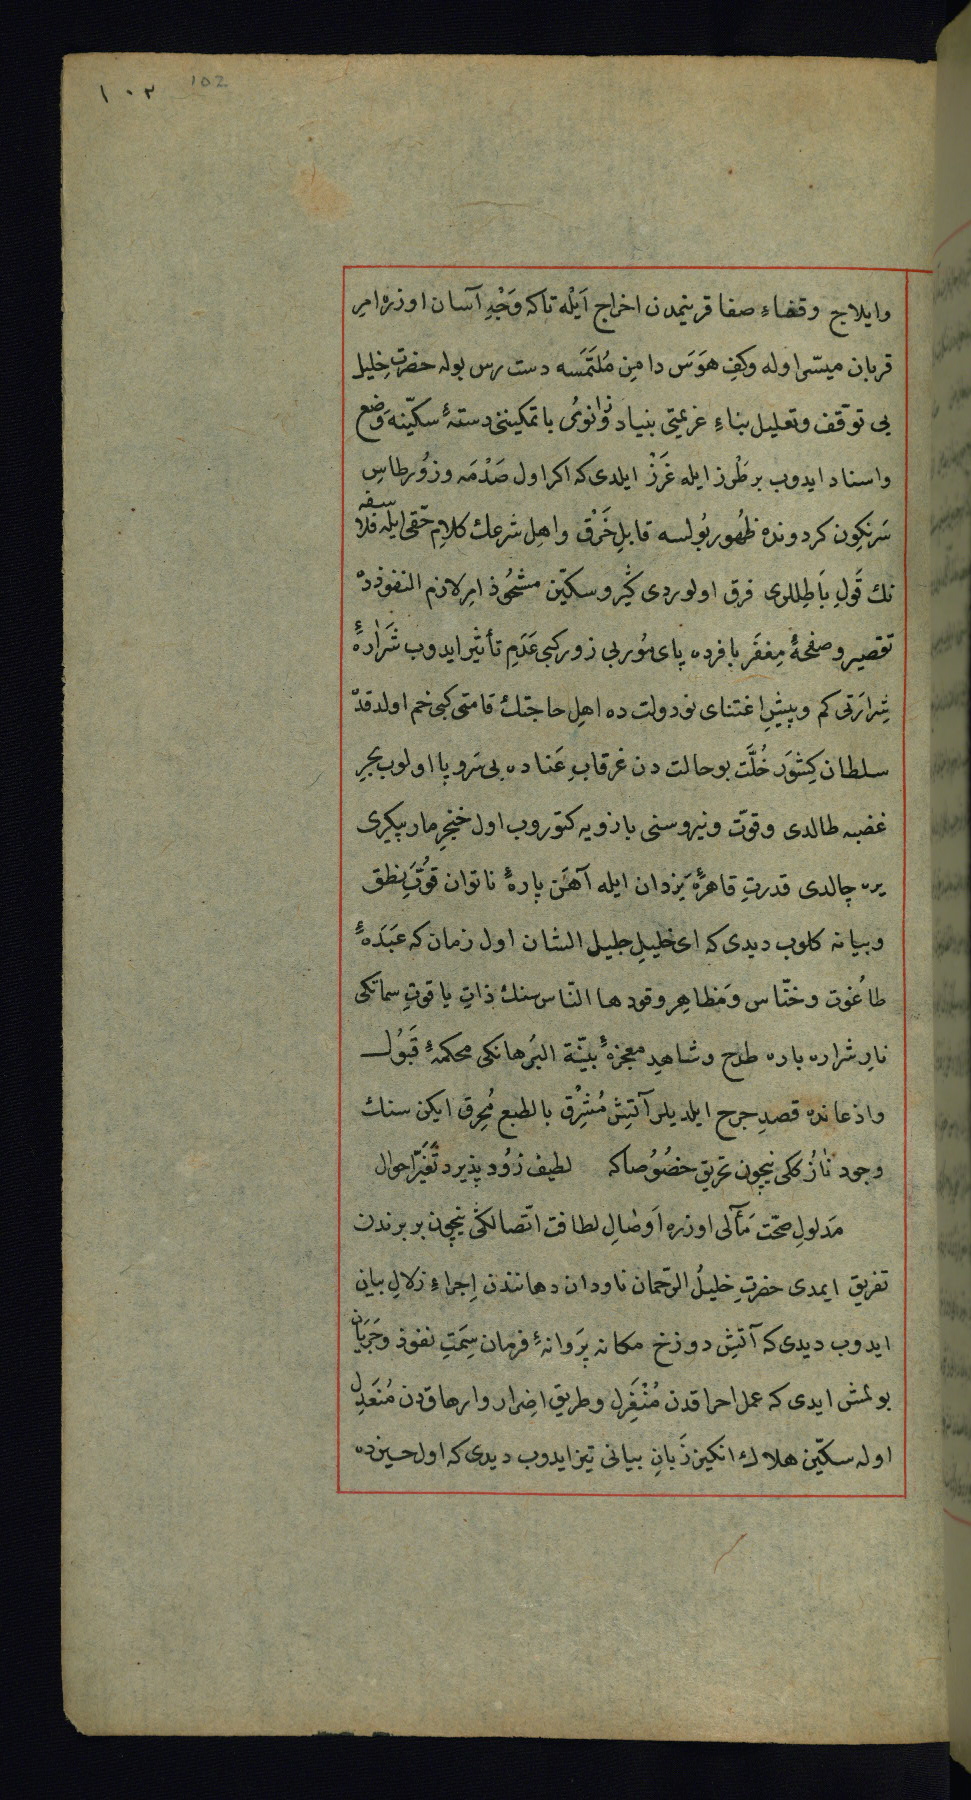 ١٠٢ 102
وايلاج وقفاء صفا قرينمدن اخراج اَيْله تاكه وَجْهِ آسان اوزره امرِ
قربان ميسّر اوله وكفِ هوَسَ دامنِ مُلتَمَسه دست رس بوله حضرتِ خليل
بى توقّف وتعليل بناءِ عزيمتى بنياد زانوىُ باتمكينى دستهٔ سكّينه وَضع
واسناد ايدوب بر طَرْز ايله غَرَزْ ايلدى كه اكر اول صَدْمَه وزُور طاسِ
سَرنكِون كردونده ظهُور بُولسه قابلِ خَرْق واهلِ شرعك كلامِ حقّى ايله فلاسفه
نك قَولِ بَاطِللرى فرق اولوردى وسكّين مشحُوذ امرِ لازم النفوذده
تقصير وصفحهٔ مِغفَر بافرده پاى مُور بى زور كبى عَدَمِ تأثير ايدوب شَرارهٔ
شِرارَتى كم وپيشِ اغتناى نودولت ده اهلِ حاجتك قامتى كبى خم اولدقده
سلطان كِشوَر خُلَّت بو حالت دن غرقابِ عَناده بى سَروپا اولوب بحرِ
غضبه طالدى وقوّت ونيروسنى بازويه كتوروب اول خنجرِ مار پيكرى
يره چالدى قدرتِ قاهرهٔ يَزدان ايله آهَن پارهٔ ناتوان قوّتِ نطق
وبيانه كلوب ديدى كه اى خليلِ جليل الشان اول زمان كه عَبَدهٔ
طاغوت وخنّاس وَمظاهرِ وقودها النّاس سنك ذاتِ ياقوتِ سماتكى
نارِ شراره باره طرح وشاهدِ معجزهٔ بيّنة البُرهانكى محكمهٔ قَبُول
واذعانده قصدِ جرح ايلديلر آتشِ مُشرِق بالطبع مُحرِق ايكن سنك
وجود نازُككى نيچون تحريق خصُوُصاكه لطيف زُود پذيرد تغيّر احوال
مَدلولِ صحّت مَآلى اوزره اَوصالِ لطافت اتّصالكى نيچون بربرندن
تفريق ايمدى حضرتِ خليلُ الرّحمان ناودان دهانندن اِجراءِ زلالِ بيان
ايدوب ديدى كه آتشِ دوزخ مكانه پَروانهٔ فرمان سِمَتِ نفوذ وجَريان
بولمش ايدى كه عملِ احراقدن مُنْعَزِل وطريق اضرار وارهاقدن مُنعَدِل
اوله سكّين هلاك انكيز زَبانِ بيانى تيز ايدوب ديدى كه اول حينده